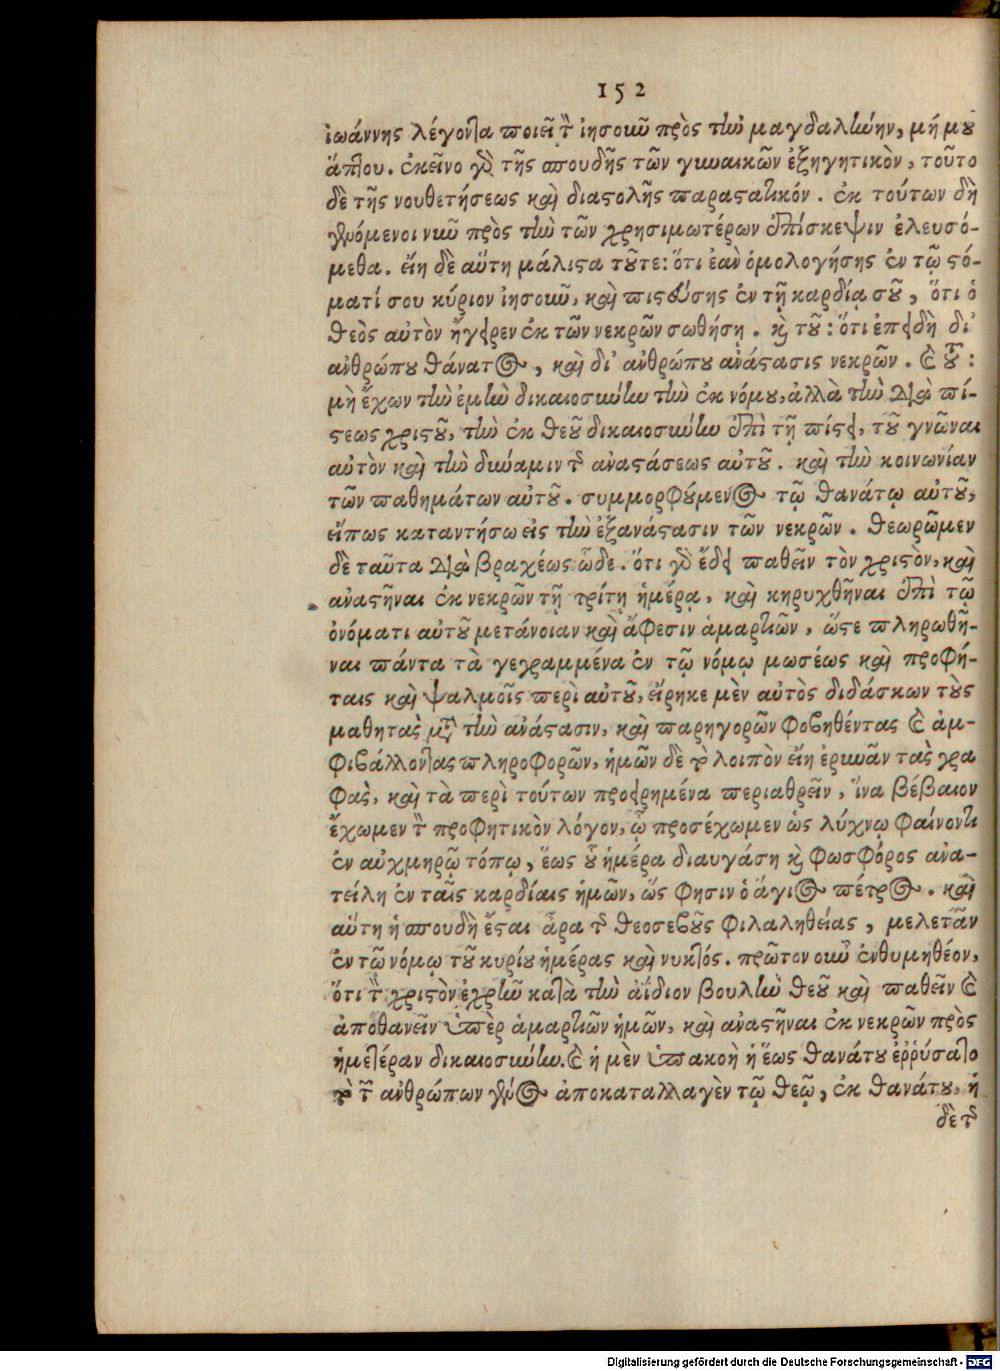 152
ἰωάννης λέγοντα ποιεῖ τὸν ἰησοῦν πρὸς τὴν μαγδαληνὴν, μή μου
ἅπτου. ἐκεῖνο γὰρ τῆς σπουδῆς τῶν γυναικῶν ἐξηγητικὸν, τοῦτο
δὲ τῆς νουθετήσεως καὶ διαστολῆς παραστατικόν. ἐκ τούτων δὴ
γενόμενοι νῦν πρὸς τὴν τῶν χρησιμωτέρων ἐπίσκεψιν ἐλευσό-
μεθα. εἴη δὲ αὕτη μάλιστα τοῦτε: ὅτι ἐὰν ὁμολογήσῃς ἐν τῷ στό-
ματί σου κύριον ἰησοῦν, καὶ πιστεύσῃς ἐν τῇ καρδίᾳ σοῦ, ὅτι ὁ
θεὸς αὐτὸν ἤγειρεν ἐκ τῶν νεκρῶν σωθήσῃ. καὶ τοῦ: ὅτι ἐπειδὴ δι'
ἀνθρώπου θάνατος, καὶ δι' ἀνθρώπου ἀνάστασις νεκρῶν. καὶ τοῦ:
μὴ ἔχων τὴν ἐμὴν δικαιοσύνην τὴν ἐκ νόμου, ἀλλὰ τὴν διὰ πί-
στεως χριστοῦ, τὴν ἐκ θεοῦ δικαιοσύνην ἐπὶ τῇ πίστει, τοῦ γνῶναι
αὐτὸν καὶ τὴν δύναμιν τῆς ἀναστάσεως αὐτοῦ. καὶ τὴν κοινωνίαν
τῶν παθημάτων αὐτοῦ. συμμορφούμενος τῷ θανάτῳ αὐτοῦ,
εἴπως καταντήσω εἰς τὴν ἐξανάστασιν τῶν νεκρῶν. θεωρῶμεν
δὲ ταῦτα διὰ βραχέως ὧδε. ὅτι γὰρ ἔδει παθεῖν τὸν χριστὸν, καὶ
ἀναστῆναι ἐκ νεκρῶν τῇ τρίτῃ ἡμέρᾳ, καὶ κηρυχθῆναι ἐπὶ τῷ
ὀνόματι αὐτοῦ μετάνοιαν καὶ ἄφεσιν ἁμαρτιῶν, ὥστε πληρωθῆ-
ναι πάντα τὰ γεγραμμένα ἐν τῷ νόμῳ μωσέως καὶ προφή-
ταις καὶ ψαλμοῖς περὶ αὐτοῦ, εἴρηκε μὲν αὐτὸς διδάσκων τοὺς
μαθητὰς μετὰ τὴν ἀνάστασιν, καὶ παρηγορῶν φοβηθέντας καὶ ἀμ-
φιβάλλοντας πληροφορῶν, ἡμῶν δὲ τὸ λοιπὸν εἴη ἐρευνᾶν τὰς γρα
φὰς, καὶ τὰ περὶ τούτων προειρημένα περιαθρεῖν, ἵνα βέβαιον
ἔχωμεν τὸν προφητικὸν λόγον, ᾧ προσέχωμεν ὡς λύχνῳ φαίνοντι
ἐν αὐχμηρῷ τόπῳ, ἕως οὗ ἡμέρα διαυγάσῃ καὶ φωσφόρος ἀνα-
τείλῃ ἐν ταῖς καρδίαις ἡμῶν, ὥς φησιν ὁ ἅγιος πέτρος. καὶ
αὕτη ἡ σπουδὴ ἔσται ἆρα τῆς θεοσεβοῦς φιλαληθείας, μελετᾶν
ἐν τῷ νόμῳ τοῦ κυρίου ἡμέρας καὶ νυκτός. πρῶτον οὖν ἐνθυμηθέον,
ὅτι τὸν χριστὸν ἐχρῆν κατὰ τὴν ἀΐδιον βουλὴν θεοῦ καὶ παθεῖν καὶ
ἀποθανεῖν ὑπὲρ ἁμαρτιῶν ἡμῶν, καὶ ἀναστῆναι ἐκ νεκρῶν πρὸς
ἡμετέραν δικαιοσύνην. καὶ ἡ μὲν ὑπακοὴ ἡ ἕως θανάτου ἐῤῥύσατο
τὸ τῶν ἀνθρώπων γένος ἀποκαταλλαγὲν τῷ θεῷ, ἐκ θανάτου, ἡ
δὲ τῆς
Digitalisierung gefördert durch die Deutsche Forschungsgemeinschaft - DFG